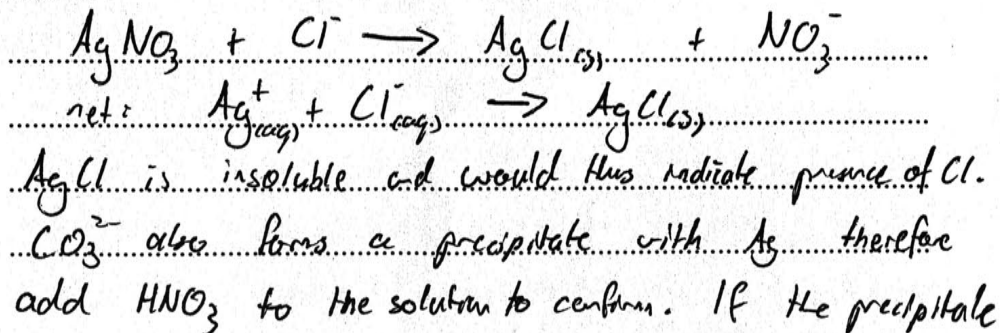 AgNO₃ + Cl⁻ → AgCl(s) + NO₃⁻
net: Ag⁺(aq) + Cl⁻(aq) → AgCl(s)
AgCl is insoluble and would thus indicate presence of Cl.
CO₃²⁻ also forms a precipitate with Ag therefore
add HNO₃ to the solution to confirm. If the precipitate